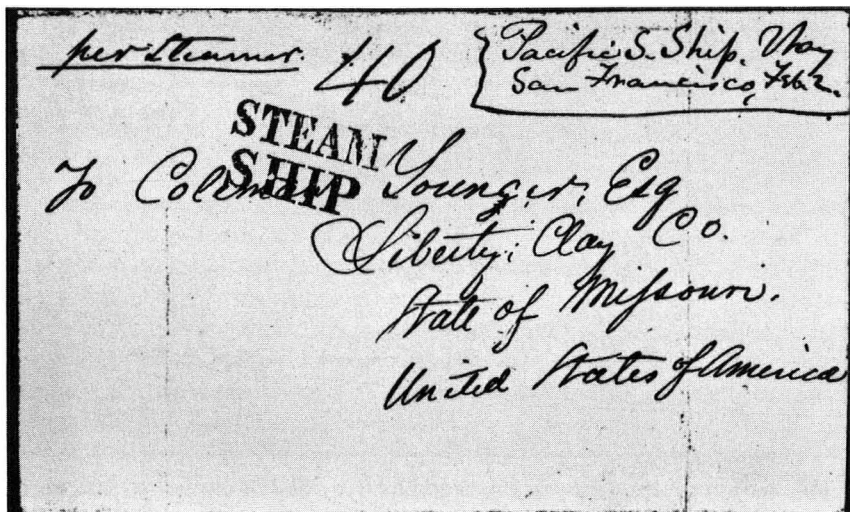 per Steamer.
40
Pacific S. Ship.
San Francisco, Feb 2.
STEAM
SHIP
To Coleman Younger, Esq
Liberty; Clay Co.
State of Missouri.
United States of America